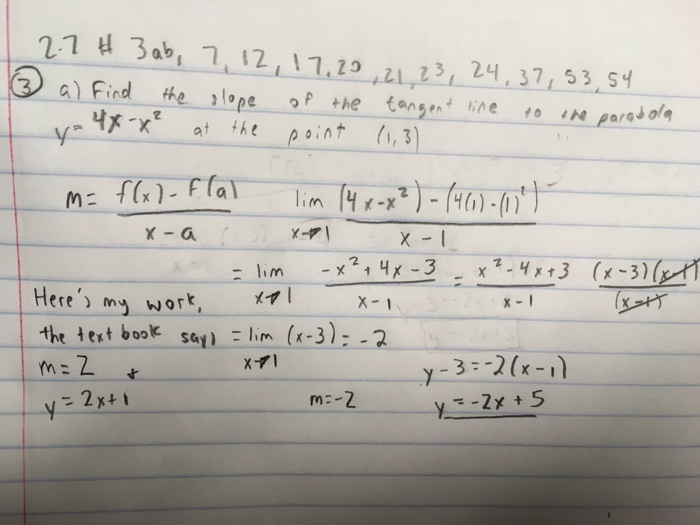 2.7 # 3ab, 7, 12, 17, 20, 21, 23, 24, 37, 53, 54
③ a) Find the slope of the tangent line to the parabola
y = 4x - x² at the point (1, 3)
m = f(x) - f(a) / x - a    lim x→1 (4x - x²) - (4(1) - (1)²) / x - 1
= lim x→1 -x² + 4x - 3 / x - 1 = x² - 4x + 3 / x - 1    (x-3)(x-1) / (x-1)
Here's my work,
the text book says    = lim x→1 (x-3) = -2
m = 2 &    y - 3 = -2(x - 1)
y = 2x + 1    m = -2    y = -2x + 5